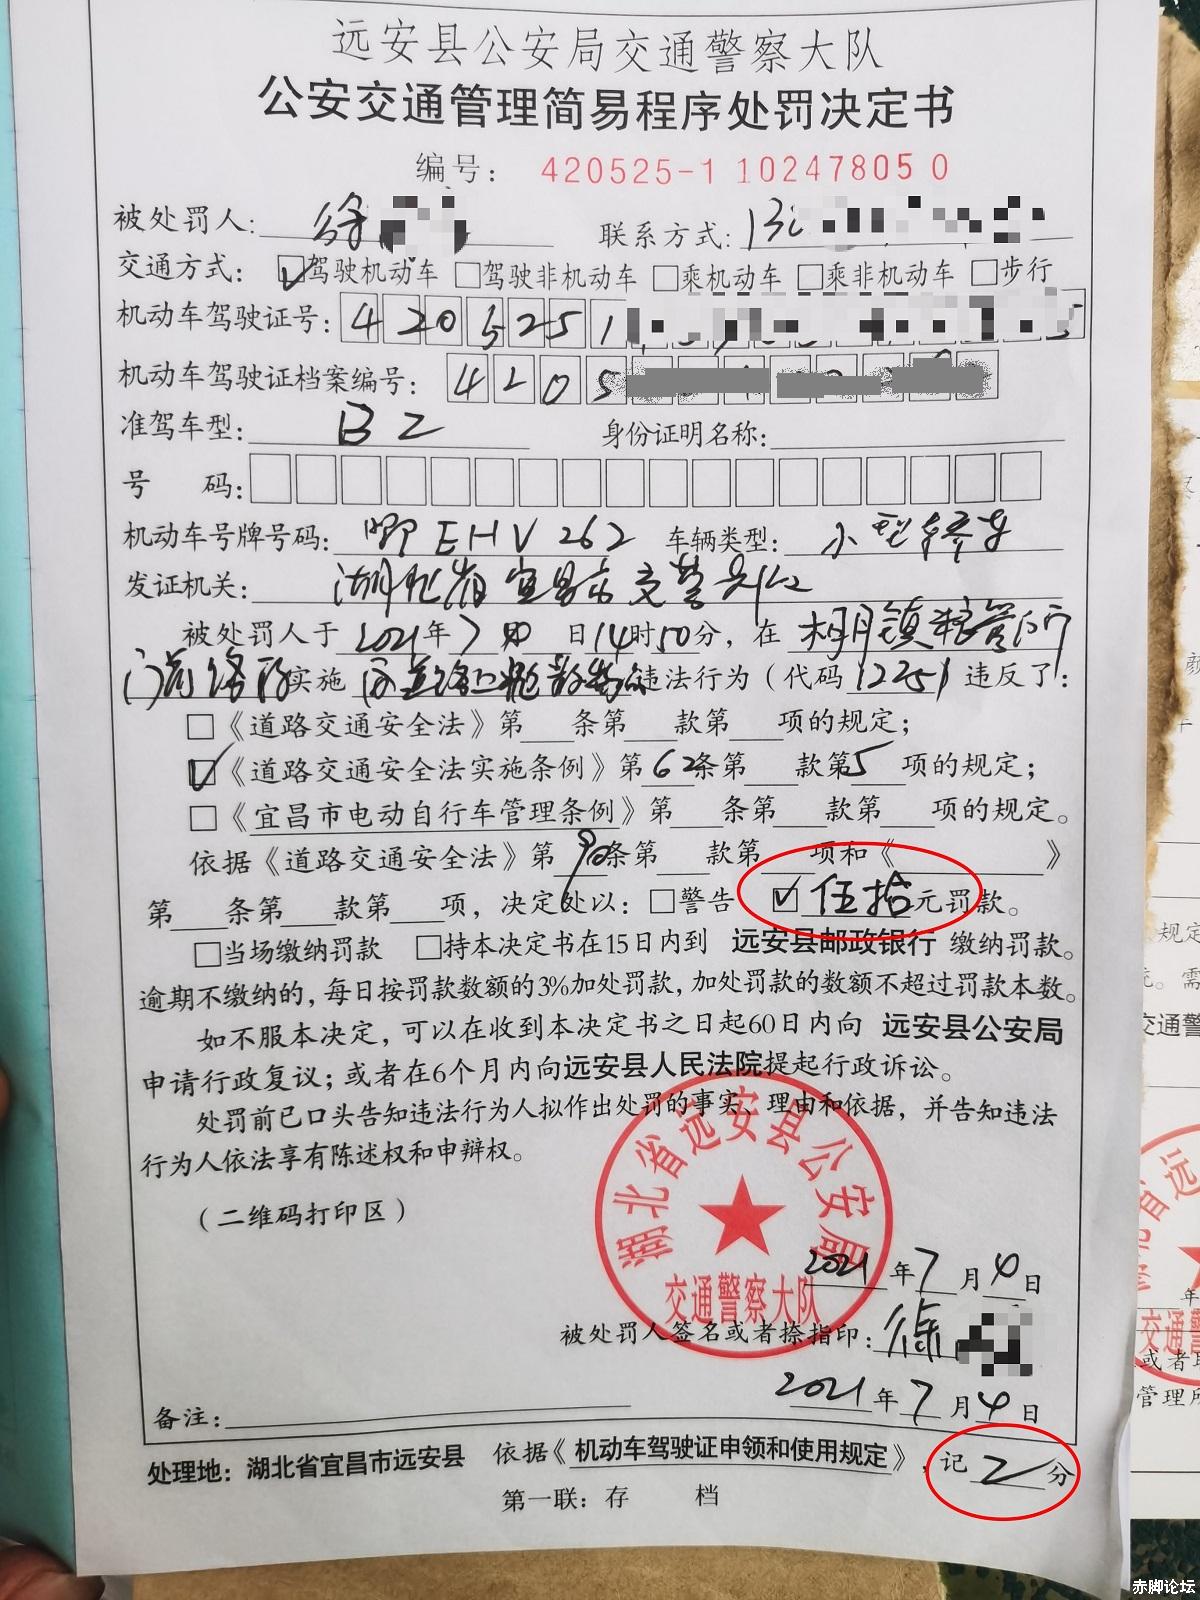 远安县公安局交通警察大队
公安交通管理简易程序处罚决定书
编号： 420525-1 10247805 0
被处罚人： 徐 联系方式： 13
交通方式： ☑驾驶机动车 □驾驶非机动车 □乘机动车 □乘非机动车 □步行
机动车驾驶证号： 4205251 5
机动车驾驶证档案编号： 4205
准驾车型： B2 身份证明名称：
号 码：
机动车号牌号码： 鄂EHV262 车辆类型： 小型轿车
发证机关： 湖北省宜昌市交警
被处罚人于 2021年7 日14时50分，在 镇粮管所
门前路段 实施 在道路上抛散物 违法行为（代码 12251 违反了：
□《道路交通安全法》第 条第 款第 项的规定；
☑《道路交通安全法实施条例》第62条第 款第5 项的规定；
□《宜昌市电动自行车管理条例》第 条第 款第 项的规定。
依据《道路交通安全法》第90条第 款第 项和《 》
第 条第 款第 项，决定处以：□警告 ☑伍拾元罚款。
□当场缴纳罚款 □持本决定书在15日内到 远安县邮政银行 缴纳罚款。
逾期不缴纳的，每日按罚款数额的3%加处罚款，加处罚款的数额不超过罚款本数。
如不服本决定，可以在收到本决定书之日起60日内向 远安县公安局
申请行政复议；或者在6个月内向远安县人民法院提起行政诉讼。
处罚前已口头告知违法行为人拟作出处罚的事实、理由和依据，并告知违法
行为人依法享有陈述权和申辩权。
（二维码打印区）
湖北省远安县公安局
交通警察大队
2021年7月4日
被处罚人签名或者捺指印：徐
2021年7月4日
备注：
处理地：湖北省宜昌市远安县 依据《机动车驾驶证申领和使用规定》，记 2 分
第一联：存 档
赤脚论坛